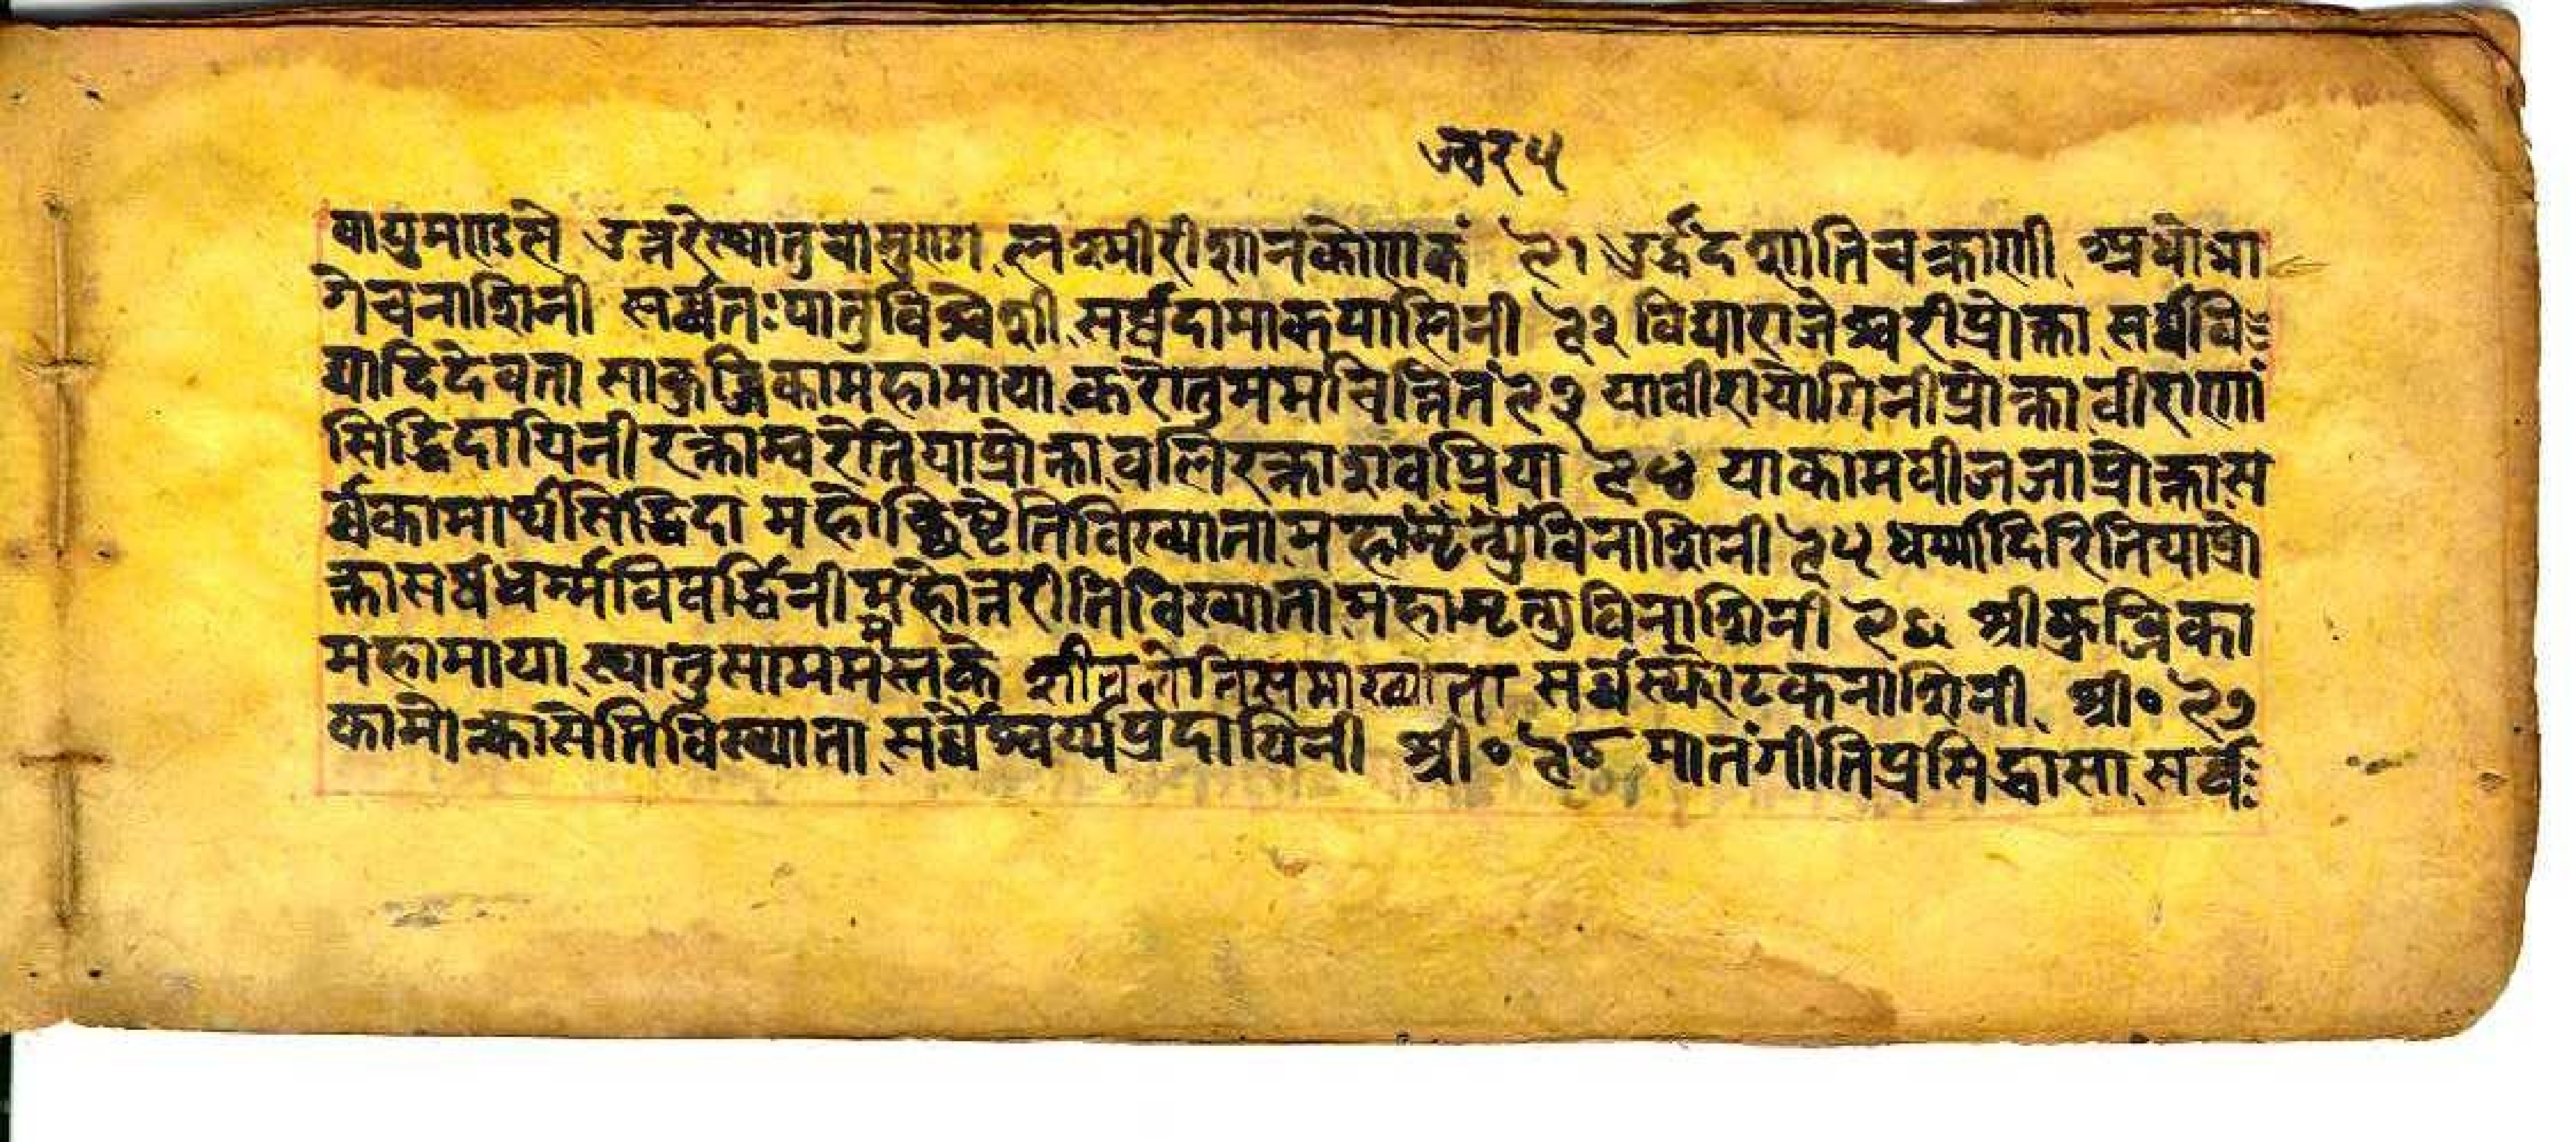 ज्वर ५
वायुमण्डले उत्तरेत्पातु चामुण्डा लक्ष्मीरीशानकोणकं २१ उर्द्धद शातिचक्राणी अधोमा
गेचनाशिनी सर्व्वतःपातुविश्वेशी सर्व्वदामाकपालिनी २२ विद्याराजेश्वरीप्रोक्ता सर्व्ववि
द्यादिदेवता साकुब्जिकामहामाया करोतुममचिन्तितं २३ यावीरायोगिनीप्रोक्ता वीराणां
सिद्धिदायिनी रक्ताम्बरेतियाप्रोक्ता वलिरक्ताशवप्रिया २४ याकामवीजजाप्रोक्तास
र्व्वकामार्थसिद्धिदा महोच्छिष्टेतिविख्याता महामृत्युविनाशिनी २५ धर्म्मादिरितियाप्रो
क्तासर्वधर्म्मविवर्द्धिनी महोत्तरीतिविख्याता महामृत्युविनाशिनी २६ श्रीकुब्जिका
महामाया त्पातुसाममस्तके शीतलेतिसमाख्याता सर्व्वस्फोटकनाशिनी श्री० २७
कामोत्कासेतिविख्याता सर्व्वैश्वर्य्यप्रदायिनी श्री० २८ मातंगीतिप्रसिद्धासा सर्व्व